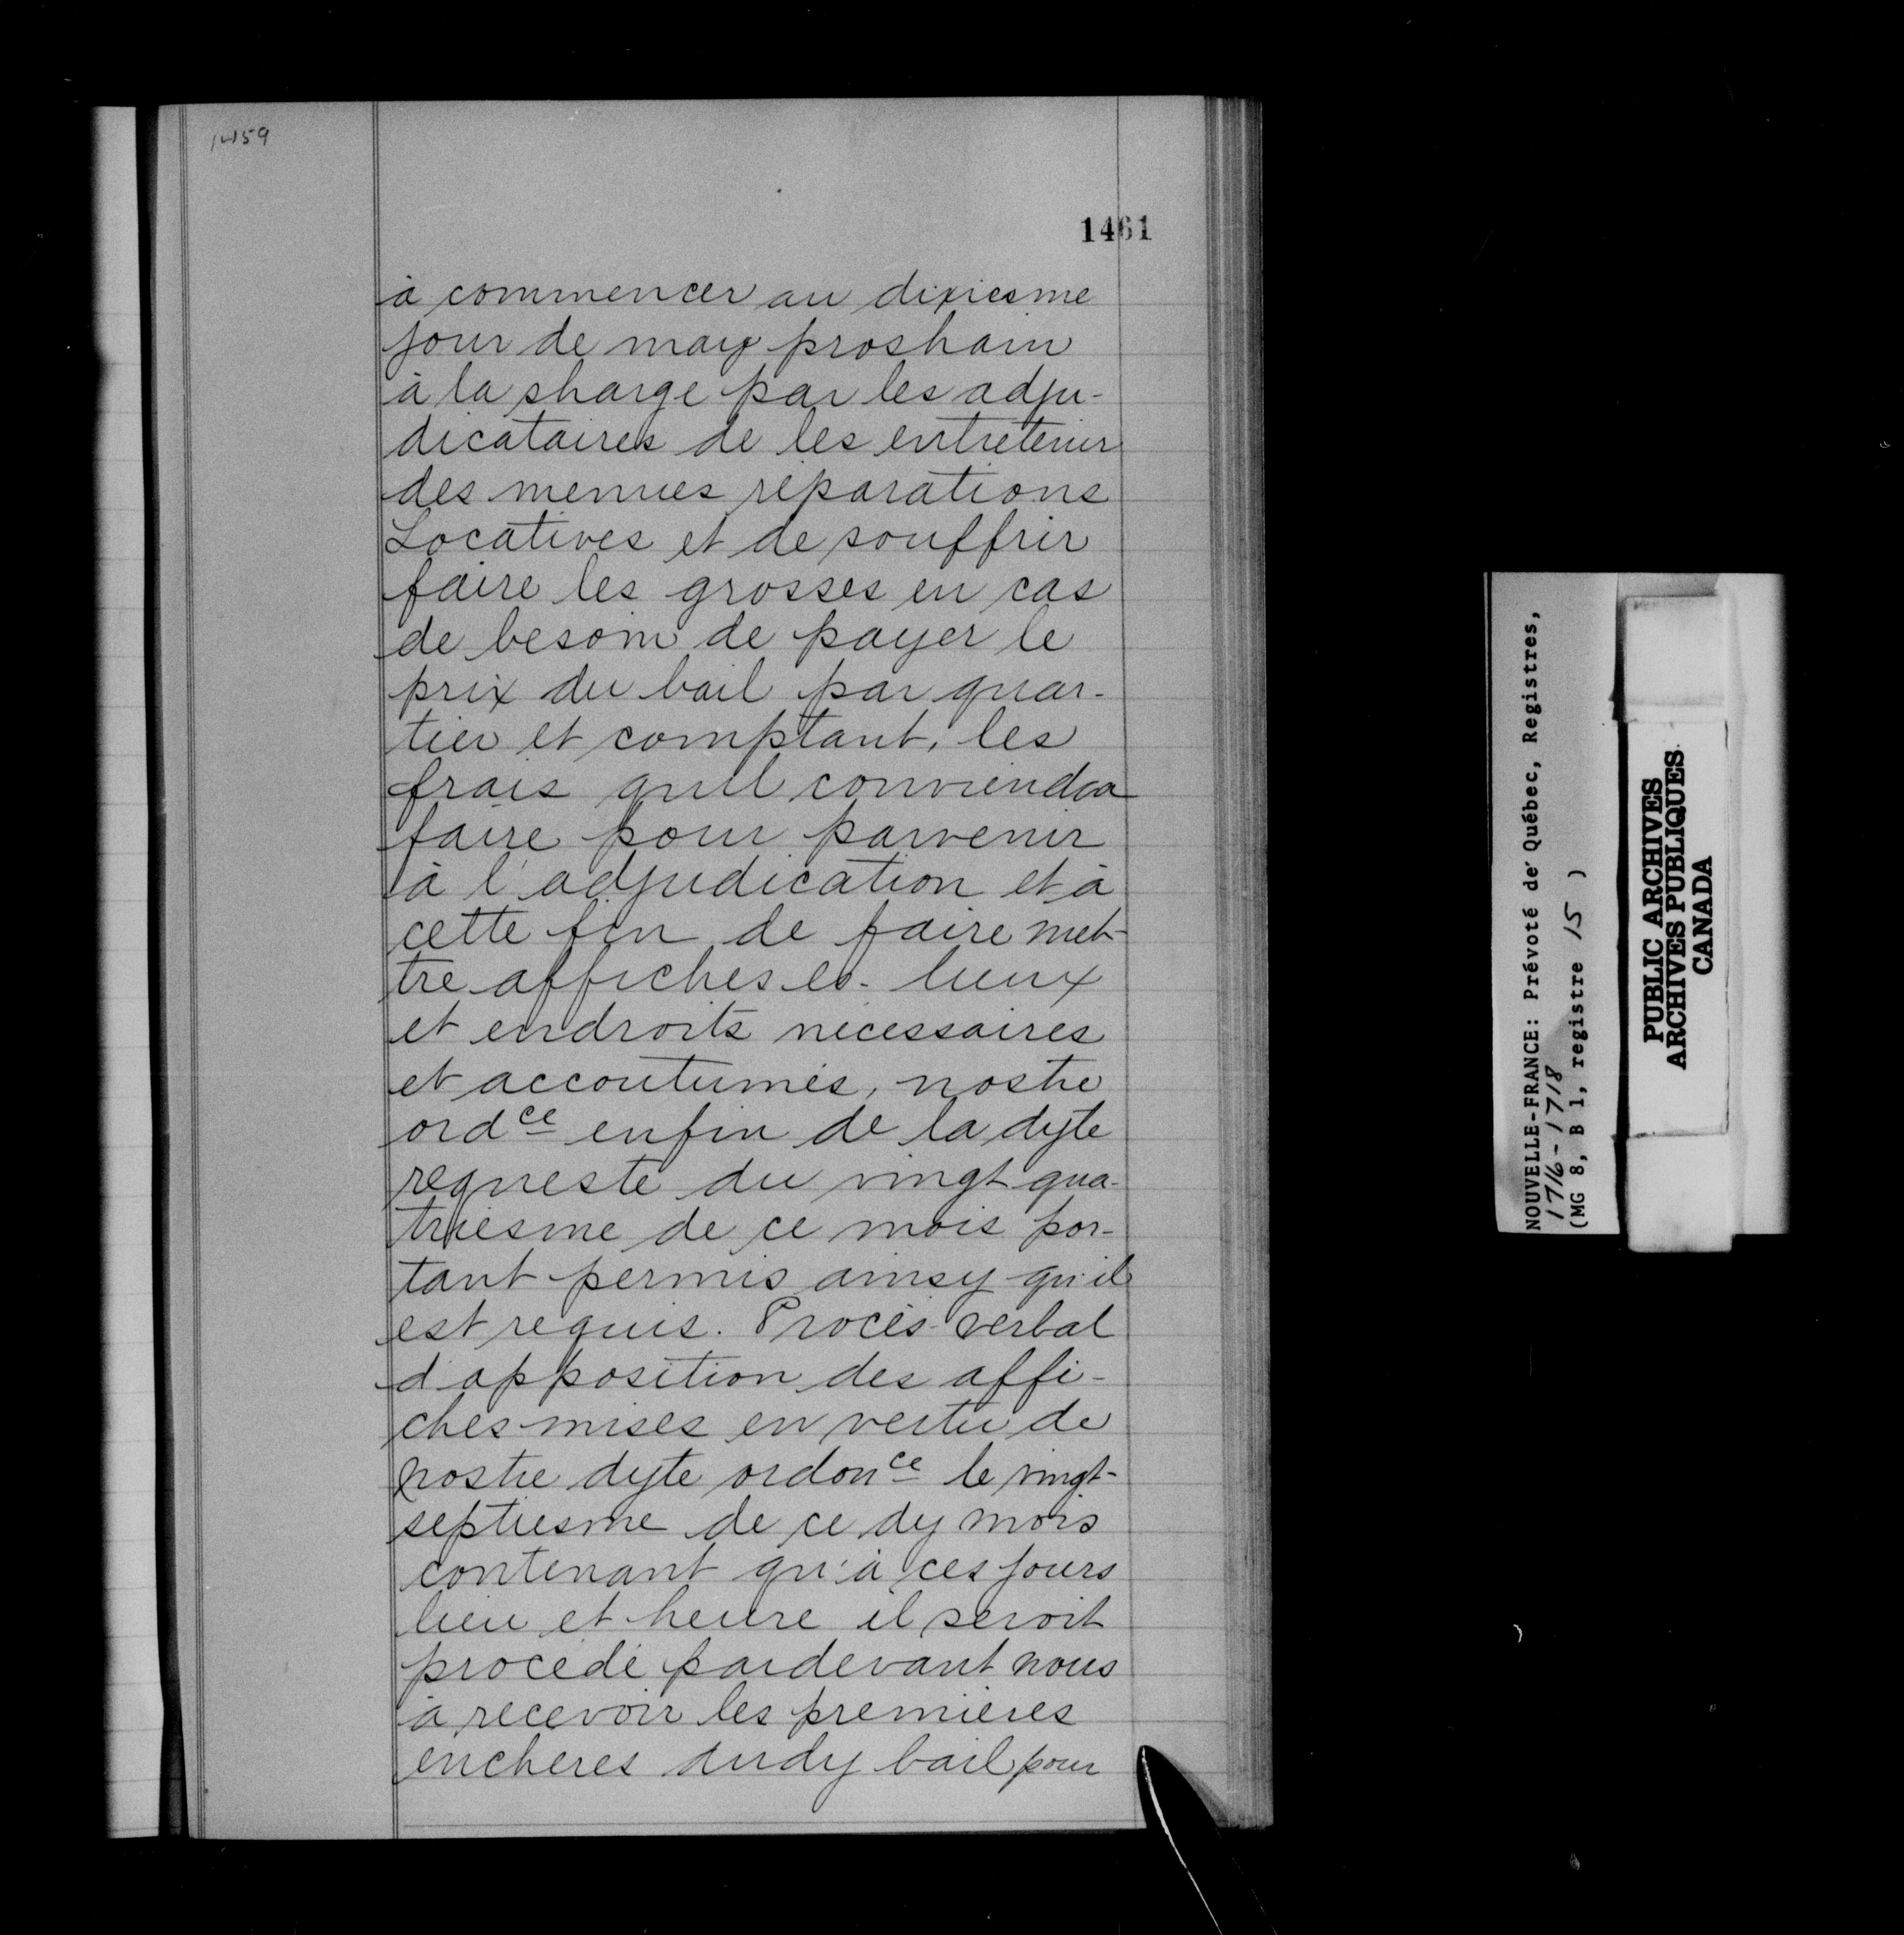 1459
1461
à commencer au dixiesme
jour de may proshain
à la sharge par les adju-
dicataires de les entretenir
des menues réparations
Locatives et de souffrir
faire les grosses en cas
de besoin de payer le
prix du bail par quar-
tier et comptant, les
frais quil conviendra
faire pour parvenir
à l'adjudication et à
cette fin de faire met-
tre affiches es- lieux
et endroits necessaires
et accoutumés, nostre
ordce enfin de la dyte
requeste du vingt qua-
triesme de ce mois por-
tant permis ainsy qu'il
est requis. Procès-verbal
d'apposition des affi-
ches mises en vertu de
nostre dyte ordonce le vingt-
septiesme de ce dy mois
contenant qu'à ces jours
lieu et heure il seroit
procédé pardevant nous
à recevoir les premieres
encheres dudy bail pour
NOUVELLE-FRANCE: Prévoté de Québec, Registres,
1716-1718
(MG 8, B 1, registre 15 )
PUBLIC ARCHIVES
ARCHIVES PUBLIQUES
CANADA